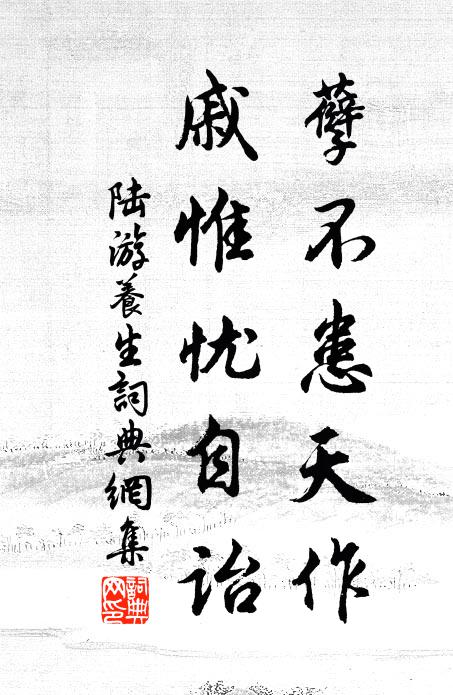 孽不患天作
戚惟忧自诒
陆游養生詞典網集
詞典网印